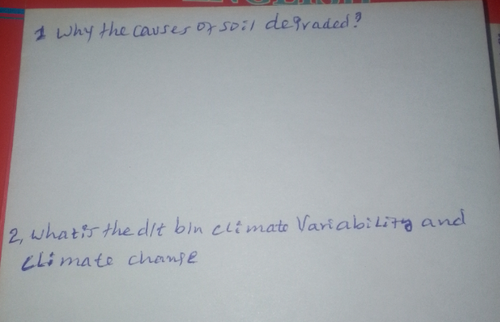 1 Why the causes of soil degraded?
2, what is the d/t b/n climate Variability and
climate change